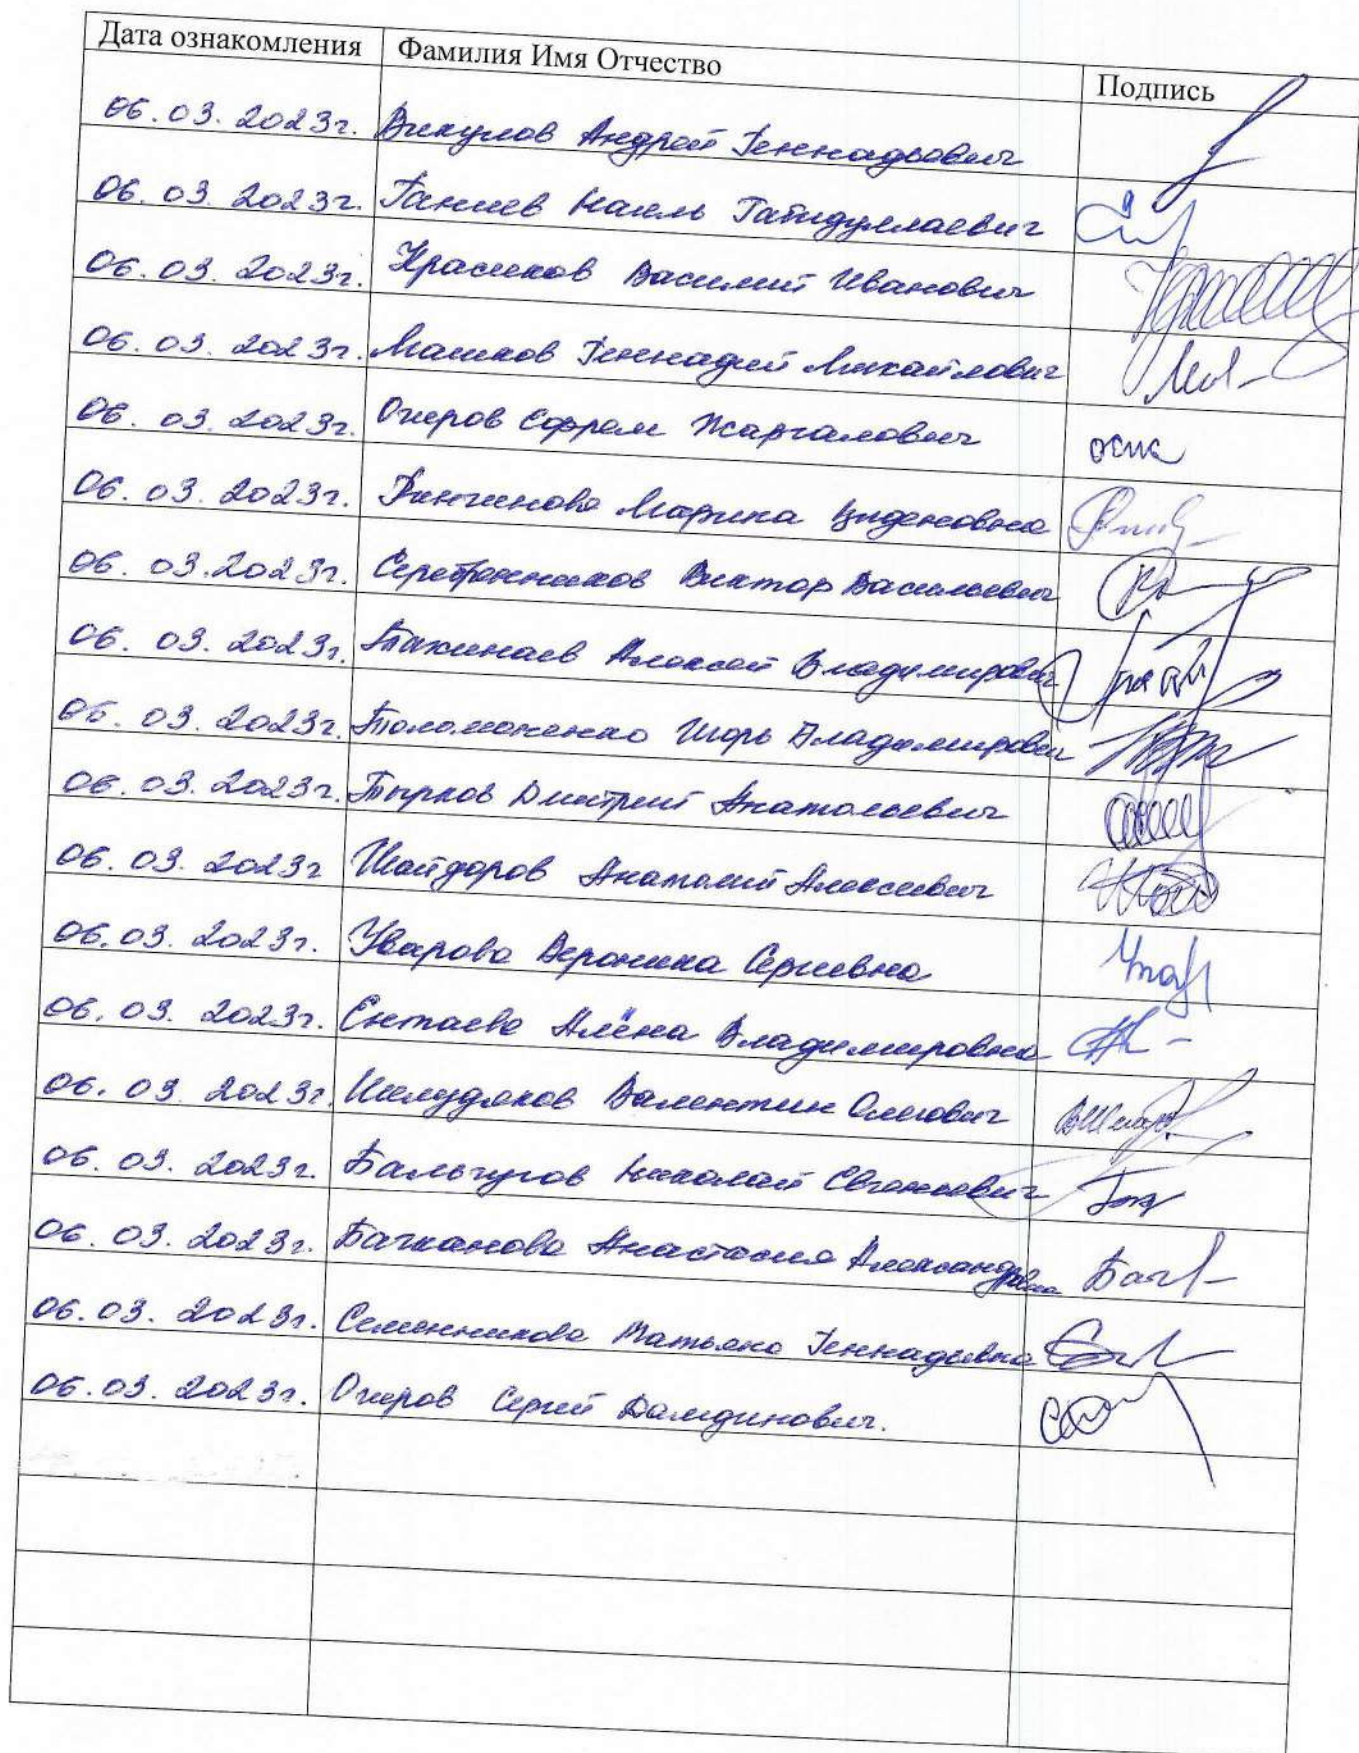 Дата ознакомления Фамилия Имя Отчество Подпись
06.03.2023г. Викулов Андрей Геннадьевич
06.03.2023г. Ганиев Наиль Гатидуллаевич
06.03.2023г. Красиков Василий Иванович
06.03.2023г. Машков Геннадий Михайлович
06.03.2023г. Очеров Ефрем Жаргалович
06.03.2023г. Марина Цыденовна
06.03.2023г. Серебренников Виктор Васильевич
06.03.2023г. Алексей Владимирович
06.03.2023г. Толомоненко Игорь Владимирович
06.03.2023г. Тырков Дмитрий Анатольевич
06.03.2023г Шайдоров Анатолий Алексеевич
06.03.2023г. Уварова Вероника Сергиевна
06.03.2023г. Ентаева Алёна Владимировна
06.03.2023г. Шелудяков Валентин Олегович
06.03.2023г. Бальчугов Николай Евгеньевич
06.03.2023г. Бачканова Анастасия Александровна
06.03.2023г. Семенникова Татьяна Геннадьевна
06.03.2023г. Очеров Сергей Дамдинович.